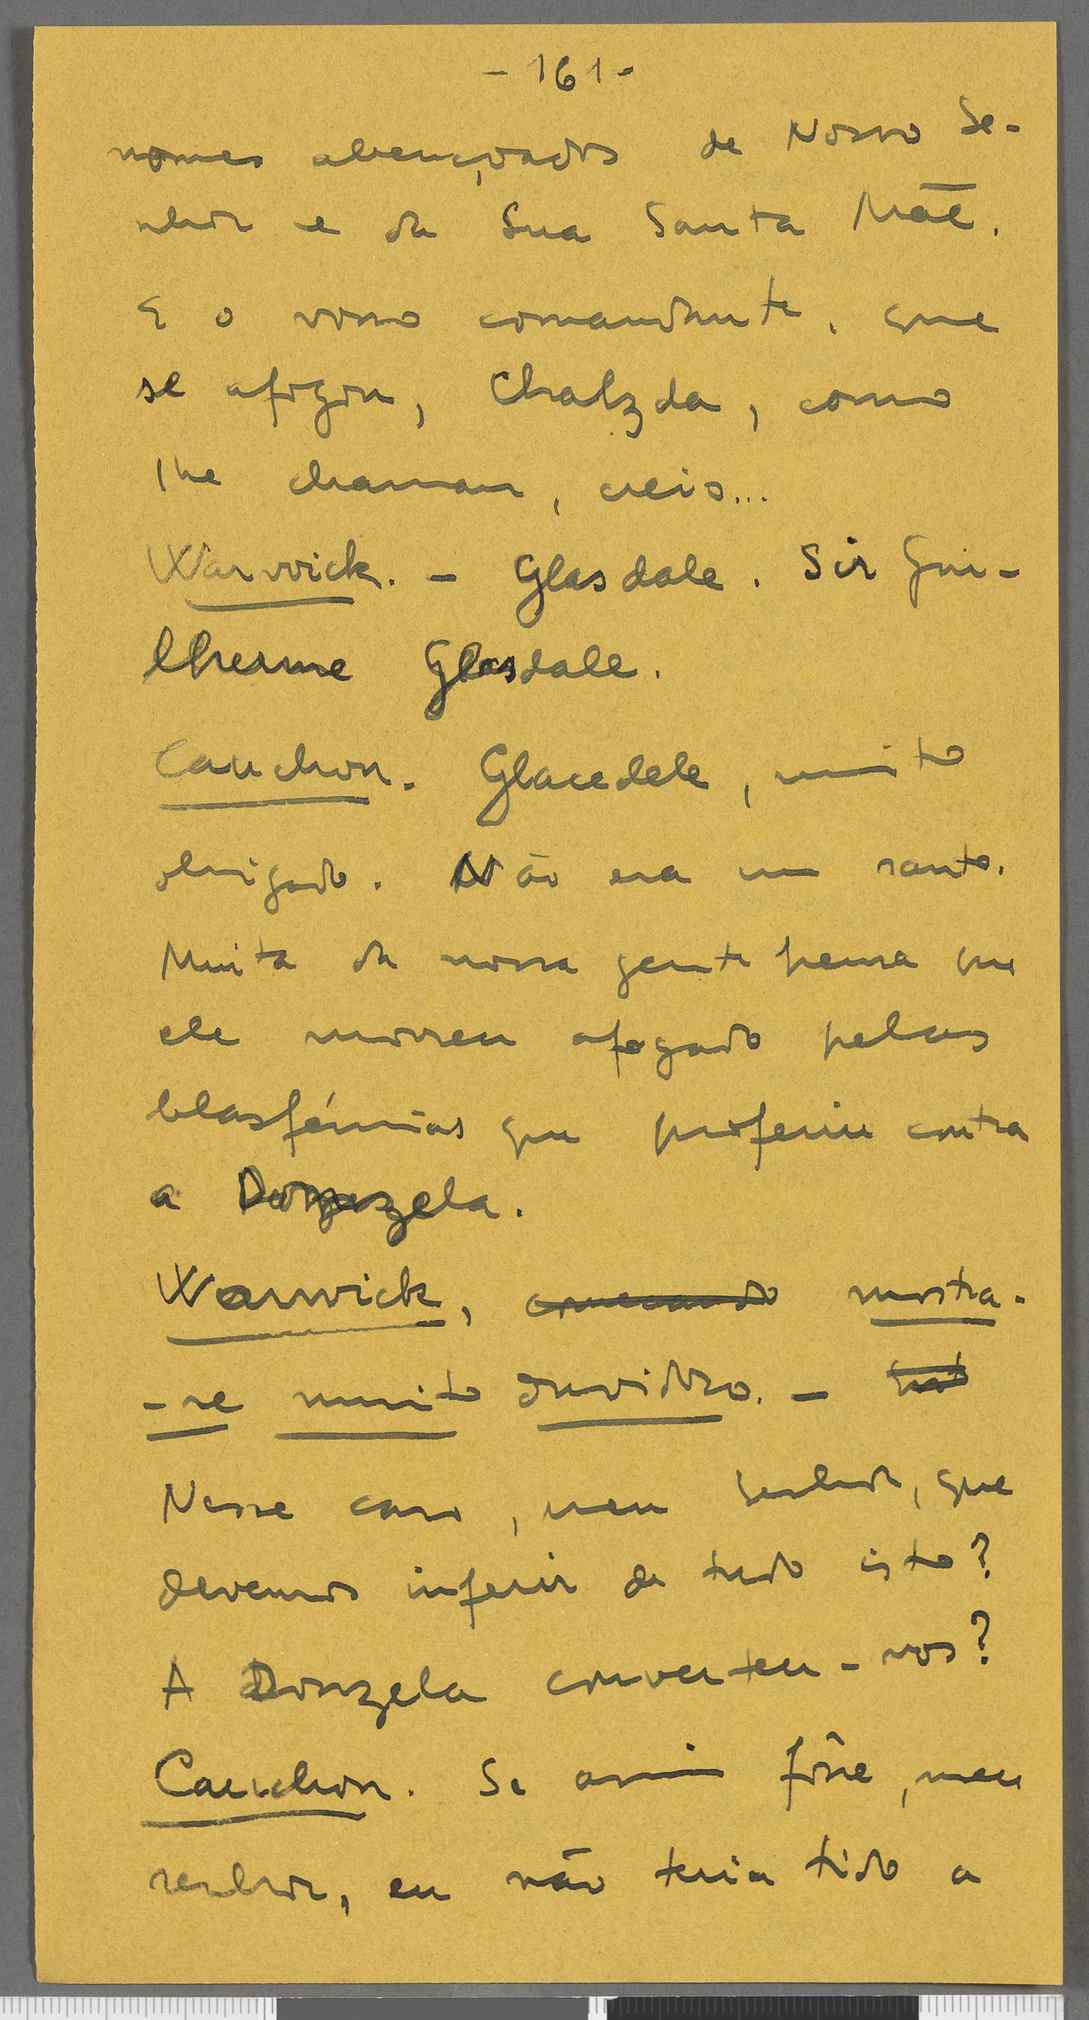 - 161 -
nomes abençoados de Nosso Se-
nhor e da Sua Santa Mãe.
E o vosso comandante, que
se afogou, Chalzda, como
lhe chamam, creio...
Warwick. - Glasdale. Sir Gui-
lherme Glasdale.
Cauchon. Glacedele, muito
obrigado. Não era um santo.
Muita da nossa gente pensa que
ele morreu afogado pelas
blasfémias que proferiu contra
a Donzela.
Warwick, começando mostra-
-se muito duvidoso. -
Nesse caso, meu senhor, que
devemos inferir de tudo isto?
A Donzela converteu-vos?
Cauchon. Se assim fôsse, meu
senhor, eu não teria tido a